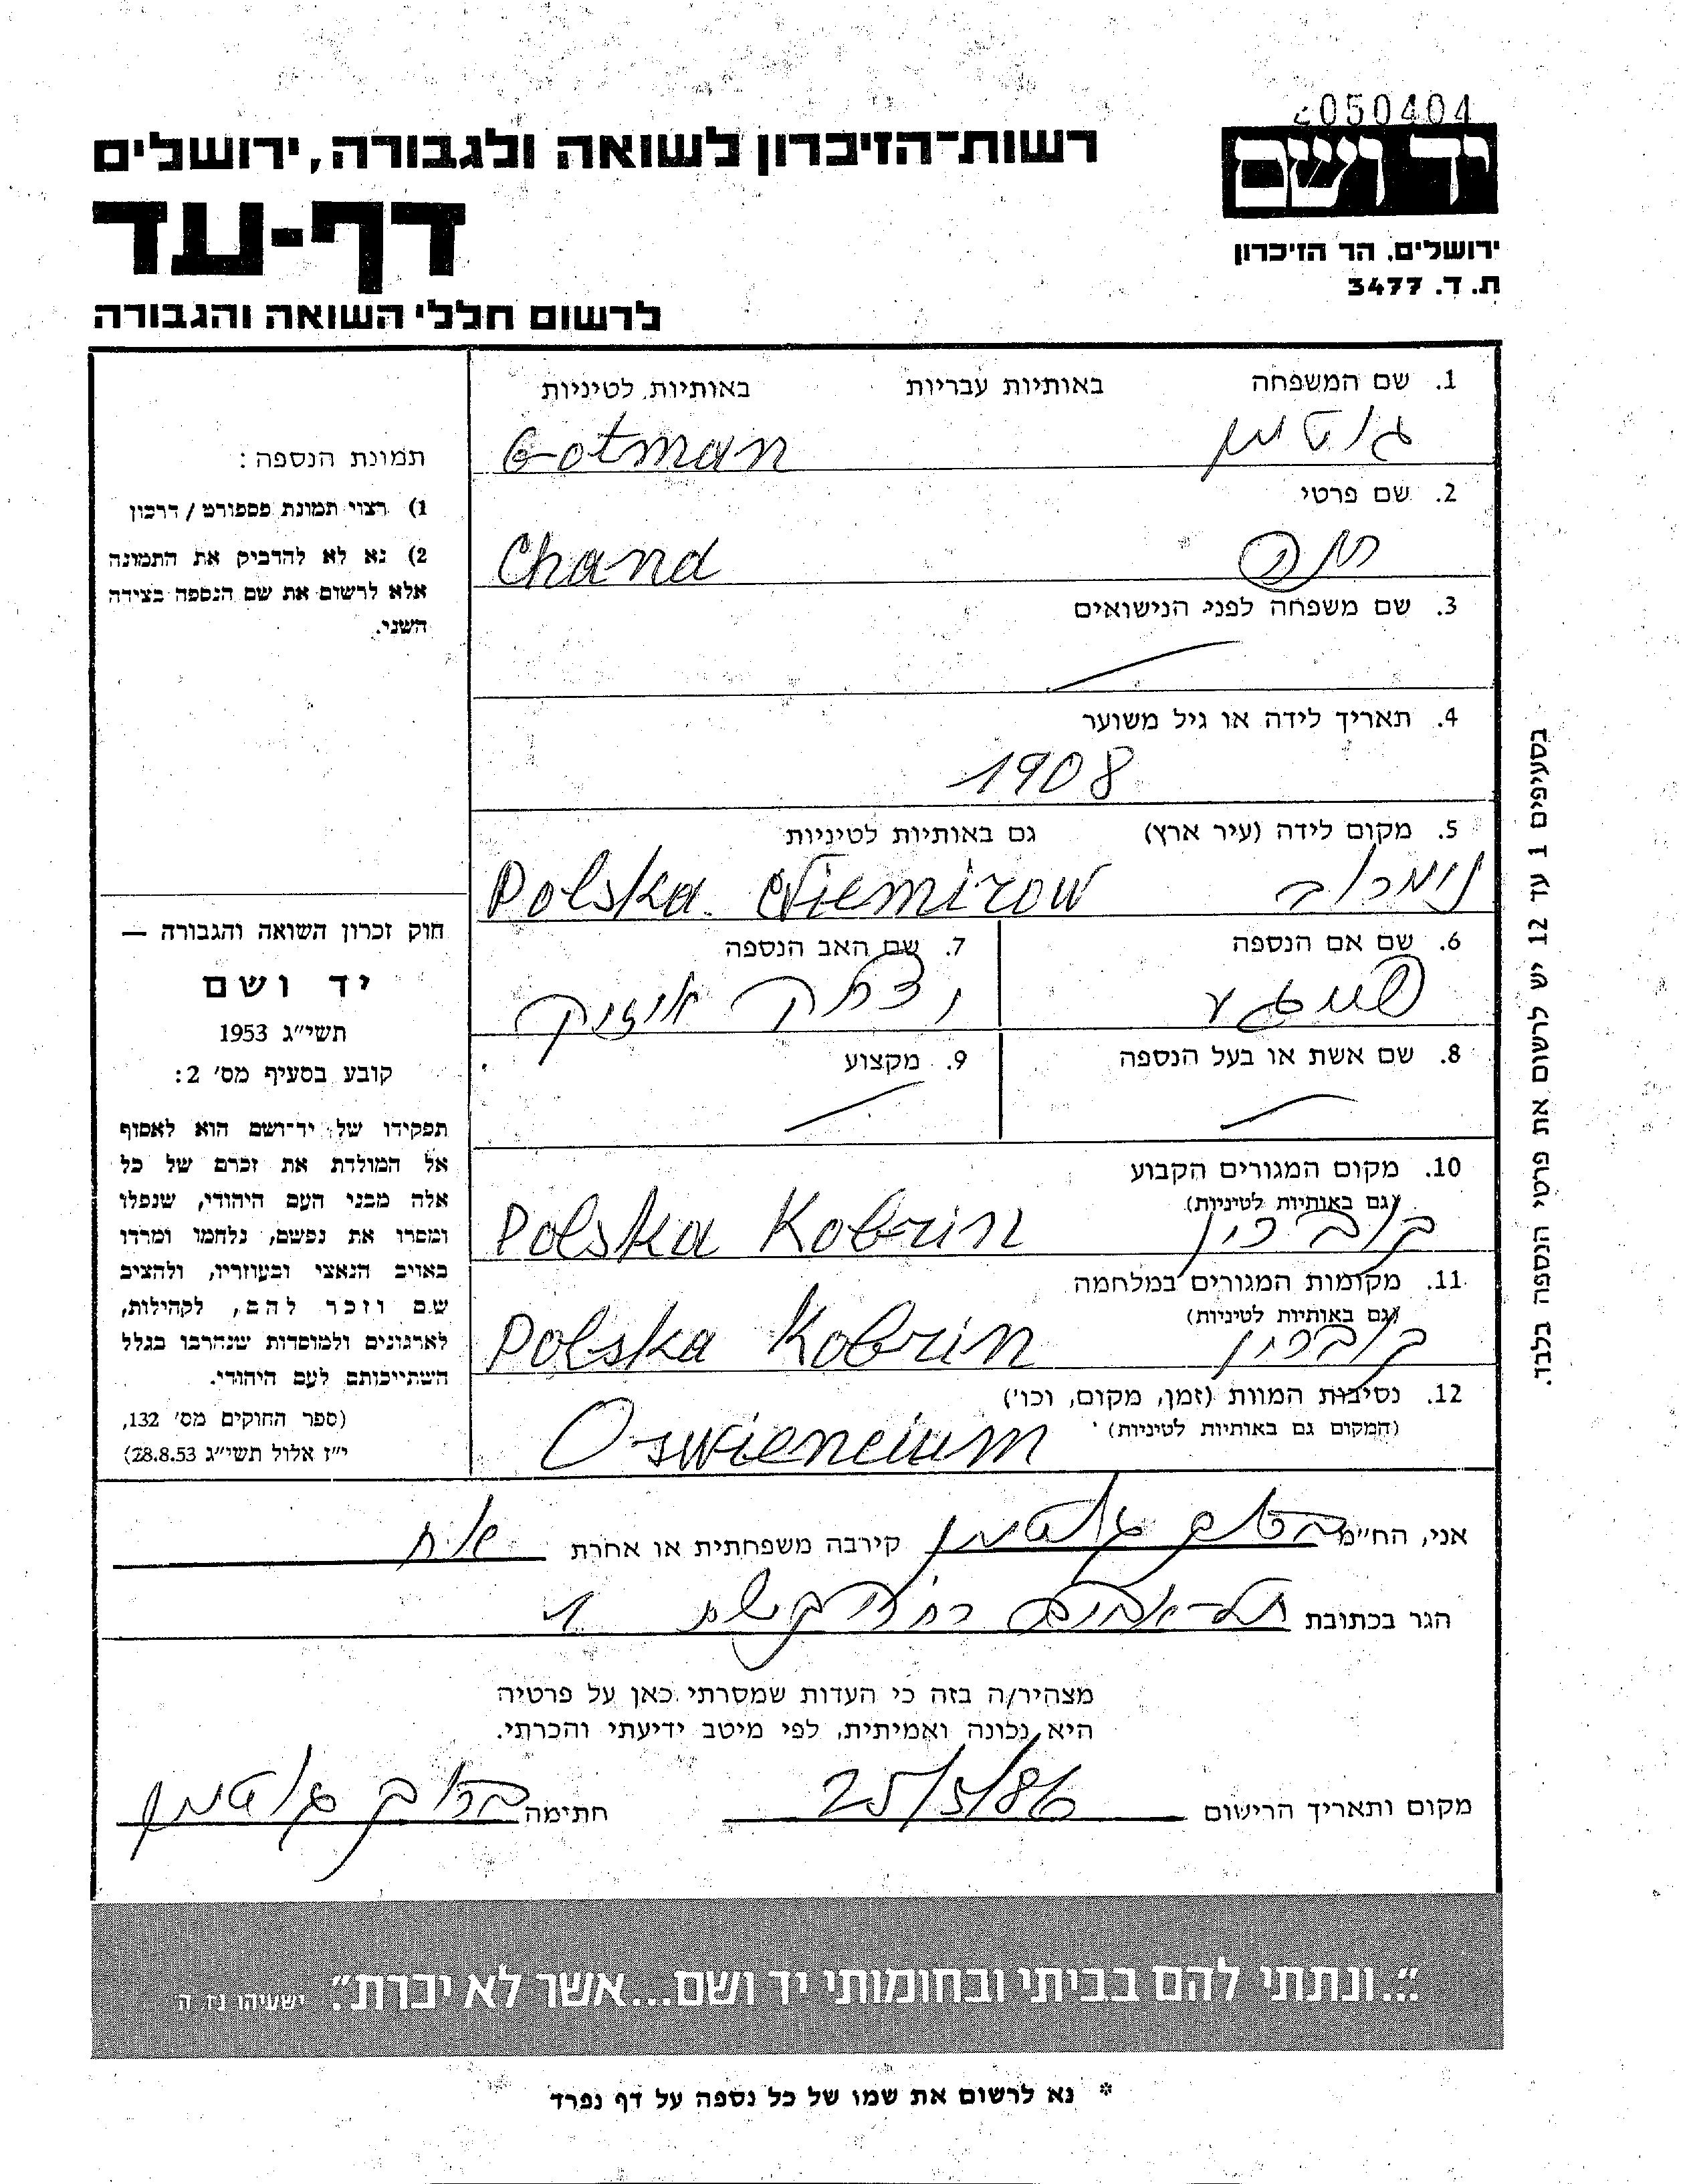 2050404
יד ושם
רשות־הזיכרון לשואה ולגבורה, ירושלים
דף-עד
ירושלים, הר הזיכרון
ת. ד. 3477
לרשום חללי השואה והגבורה
1. שם המשפחה באותיות עבריות באותיות לטיניות
גוטמן Gotman
2. שם פרטי
חנה Chana
3. שם משפחה לפני הנישואים
4. תאריך לידה או גיל משוער
1908
5. מקום לידה (עיר ארץ) גם באותיות לטיניות
נימרוב Polska Niemirow
6. שם אם הנספה
7. שם האב הנספה
יצחק אייזיק
8. שם אשת או בעל הנספה
9. מקצוע
10. מקום המגורים הקבוע
(גם באותיות לטיניות)
קוברין Polska Kobrin
11. מקומות המגורים במלחמה
(גם באותיות לטיניות)
קוברין Polska Kobrin
12. נסיבות המוות (זמן, מקום, וכו')
(המקום גם באותיות לטיניות)
Oswiencium
תמונת הנספה:
1) רצוי תמונת פספורט / דרכון
2) נא לא להדביק את התמונה
אלא לרשום את שם הנספה בצידה
השני.
חוק זכרון השואה והגבורה —
יד ושם
תשי"ג 1953
קובע בסעיף מס' 2:
תפקידו של יד־ושם הוא לאסוף
אל המולדת את זכרם של כל
אלה מבני העם היהודי, שנפלו
ומסרו את נפשם, נלחמו ומרדו
באויב הנאצי ובעוזריו, ולהציב
שם וזכר להם, לקהילות,
לארגונים ולמוסדות שנחרבו בגלל
השתייכותם לעם היהודי.
(ספר החוקים מס' 132,
י"ז אלול תשי"ג 28.8.53)
בסעיפים 1 עד 12 יש לרשום את פרטי הנספה בלבד.
אני, הח"מ ברוך גוטמן קירבה משפחתית או אחרת אח
הגר בכתובת תל-אביב רח' 1
מצהיר/ה בזה כי העדות שמסרתי כאן על פרטיה
היא נכונה ואמיתית, לפי מיטב ידיעתי והכרתי.
מקום ותאריך הרישום 25/5/86 חתימה ברוך גוטמן
"...ונתתי להם בביתי ובחומותי יד ושם...אשר לא יכרת". ישעיהו נז ה
* נא לרשום את שמו של כל נספה על דף נפרד